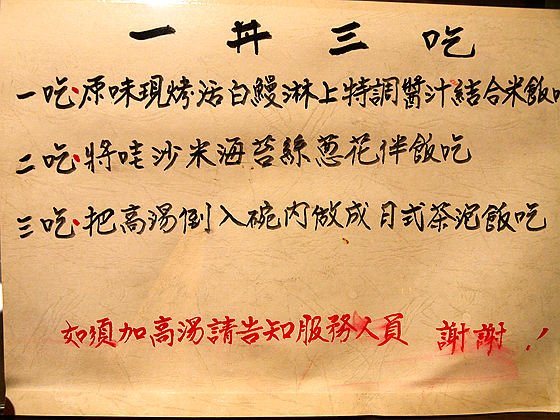 一丼三吃
一吃:原味現烤活白鰻淋上特調醬汁結合米飯吃
二吃:將哇沙米海苔絲蔥花伴飯吃
三吃:把高湯倒入碗內做成日式茶泡飯吃
如須加高湯請告知服務人員 謝謝!